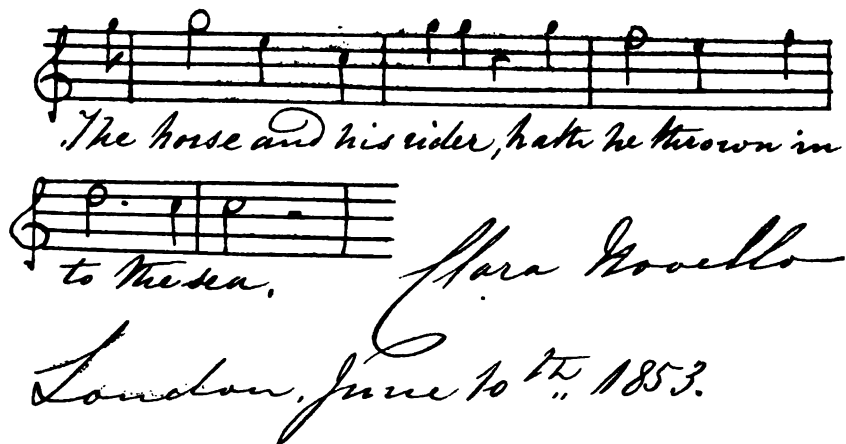 The horse and his rider, hath he thrown in
to the sea.
Clara Novello
London, June 10th, 1853.